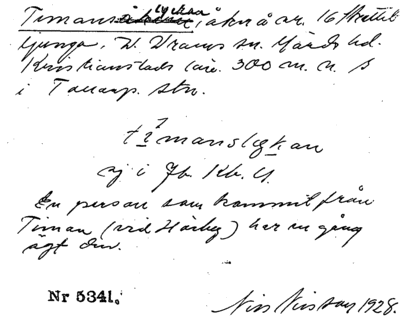 Timanslyckan, åkr å nr. 16 Skättil
ljunga, V. Vrams sn. Gärds hd.
Kristianstads län. 300 m. n. S
i Tollarp. stn.
tìmanslykan
ej i Jb. Kb. U.
En person som kommit från
Timan (vid Hörby) har en gång
ägt den.
Nr 5341.
Nils Nilsson 1928.